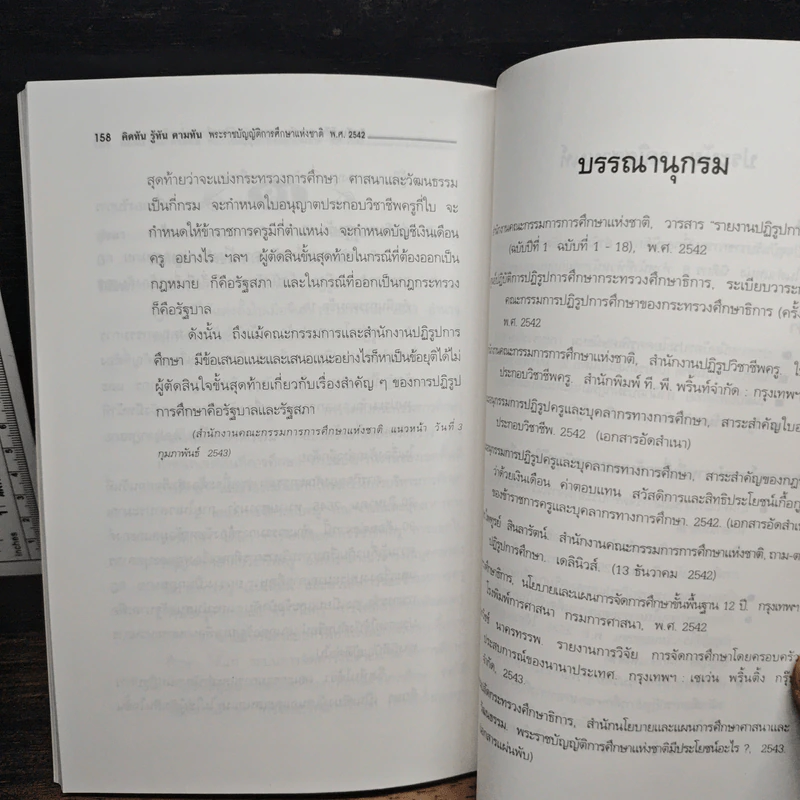 158 คิดทัน รู้ทัน ตามทัน พระราชบัญญัติการศึกษาแห่งชาติ พ.ศ. 2542
สุดท้ายว่าจะแบ่งกระทรวงการศึกษา ศาสนาและวัฒนธรรม
เป็นกี่กรม จะกำหนดใบอนุญาตประกอบวิชาชีพครูกี่ใบ จะ
กำหนดให้ข้าราชการครูมีกี่ตำแหน่ง จะกำหนดบัญชีเงินเดือน
ครู อย่างไร ฯลฯ ผู้ตัดสินขั้นสุดท้ายในกรณีที่ต้องออกเป็น
กฎหมาย ก็คือรัฐสภา และในกรณีที่ออกเป็นกฎกระทรวง
ก็คือรัฐบาล
ดังนั้น ถึงแม้คณะกรรมการและสำนักงานปฏิรูปการ
ศึกษา มีข้อเสนอแนะและเสนอแนะอย่างไรก็หาเป็นข้อยุติได้ไม่
ผู้ตัดสินใจขั้นสุดท้ายเกี่ยวกับเรื่องสำคัญ ๆ ของการปฏิรูป
การศึกษาคือรัฐบาลและรัฐสภา
(สำนักงานคณะกรรมการการศึกษาแห่งชาติ แนวหน้า วันที่ 3
กุมภาพันธ์ 2543)
บรรณานุกรม
คณะกรรมการการศึกษาแห่งชาติ, วารสาร "รายงานปฏิรูปกา
(ฉบับปีที่ 1 ฉบับที่ 1 - 18), พ.ศ. 2542
บัติการปฏิรูปการศึกษากระทรวงศึกษาธิการ, ระเบียบวาระก
คณะกรรมการปฏิรูปการศึกษาของกระทรวงศึกษาธิการ (ครั้ง
พ.ศ. 2542
งานคณะกรรมการการศึกษาแห่งชาติ, สำนักงานปฏิรูปวิชาชีพครู. ใ
ประกอบวิชาชีพครู. สำนักพิมพ์ ที. พี. พริ้นท์จำกัด : กรุงเทพฯ
อนุกรรมการปฏิรูปครูและบุคลากรทางการศึกษา, สาระสำคัญใบอ
ประกอบวิชาชีพ. 2542 (เอกสารอัดสำเนา)
อนุกรรมการปฏิรูปครูและบุคลากรทางการศึกษา, สาระสำคัญของกฎ
ว่าด้วยเงินเดือน ค่าตอบแทน สวัสดิการและสิทธิประโยชน์เกื้อกูล
ของข้าราชการครูและบุคลากรทางการศึกษา. 2542. (เอกสารอัดสำเน
ไพฑูรย์ สินลารัตน์. สำนักงานคณะกรรมการการศึกษาแห่งชาติ, ถาม-ต
ปฏิรูปการศึกษา. เดลินิวส์. (13 ธันวาคม 2542)
ศึกษาธิการ, นโยบายและแผนการจัดการศึกษาขั้นพื้นฐาน 12 ปี. กรุงเทพฯ
โรงพิมพ์การศาสนา กรมการศาสนา, พ.ศ. 2542
นาครทรรพ. รายงานการวิจัย การจัดการศึกษาโดยครอบครัว
ประสบการณ์ของนานาประเทศ. กรุงเทพฯ : เซเว่น พริ้นติ้ง กรุ๊ป
จำกัด, 2543.
กระทรวงศึกษาธิการ, สำนักนโยบายและแผนการศึกษาศาสนาและ
วัฒนธรรม. พระราชบัญญัติการศึกษาแห่งชาติมีประโยชน์อะไร ?, 2543.
(เอกสารแผ่นพับ)